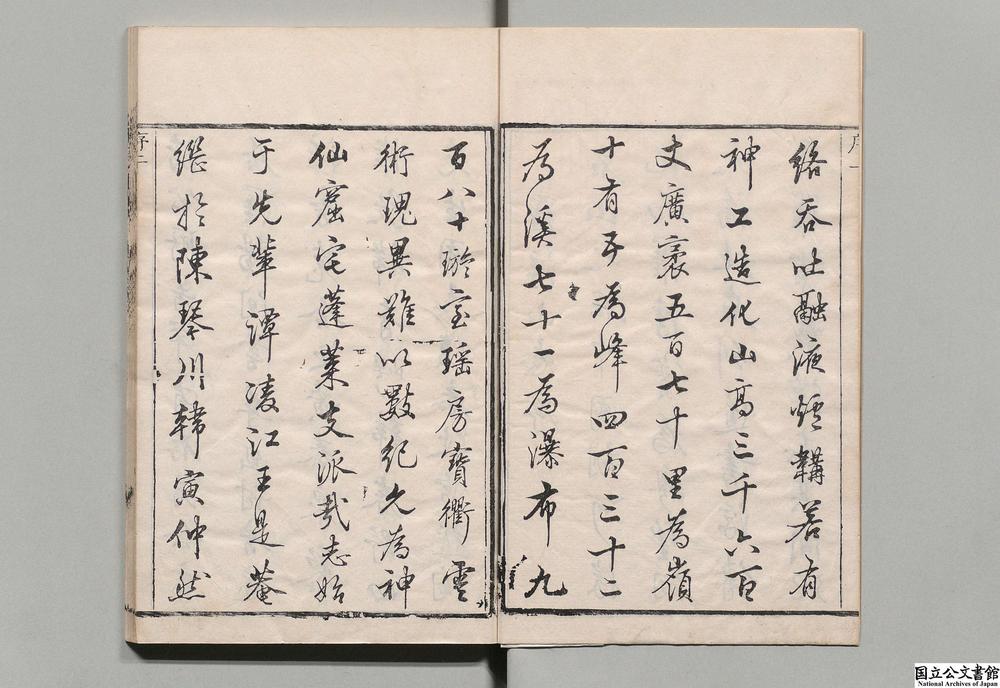 絡吞吐融液爐韝若有
神工造化山高三千六百
丈廣袤五百七十里為嶺
十有五為峰四百三十二
為溪七十一為瀑布九
百八十璇室瑤房寶衢雲
術瑰異難以數紀允為神
仙窟宅蓬萊支派哉志始
于先輩譚凌江王是菴
繼於陳琴川韓寅仲然
序一
序二
国立公文書館
National Archives of Japan